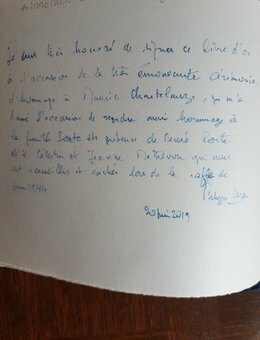 Je suis très honoré de signer ce livre d'or
à l'occasion de la très émouvante cérémonie
d'hommage à Maurice, qui m'a
donné l'occasion de rendre aussi hommage à
la famille en présence de
et à Célestin et Jeanne qui nous
ont accueillis et cachés lors de la rafle de
1944
Philippe
20 juin 2019